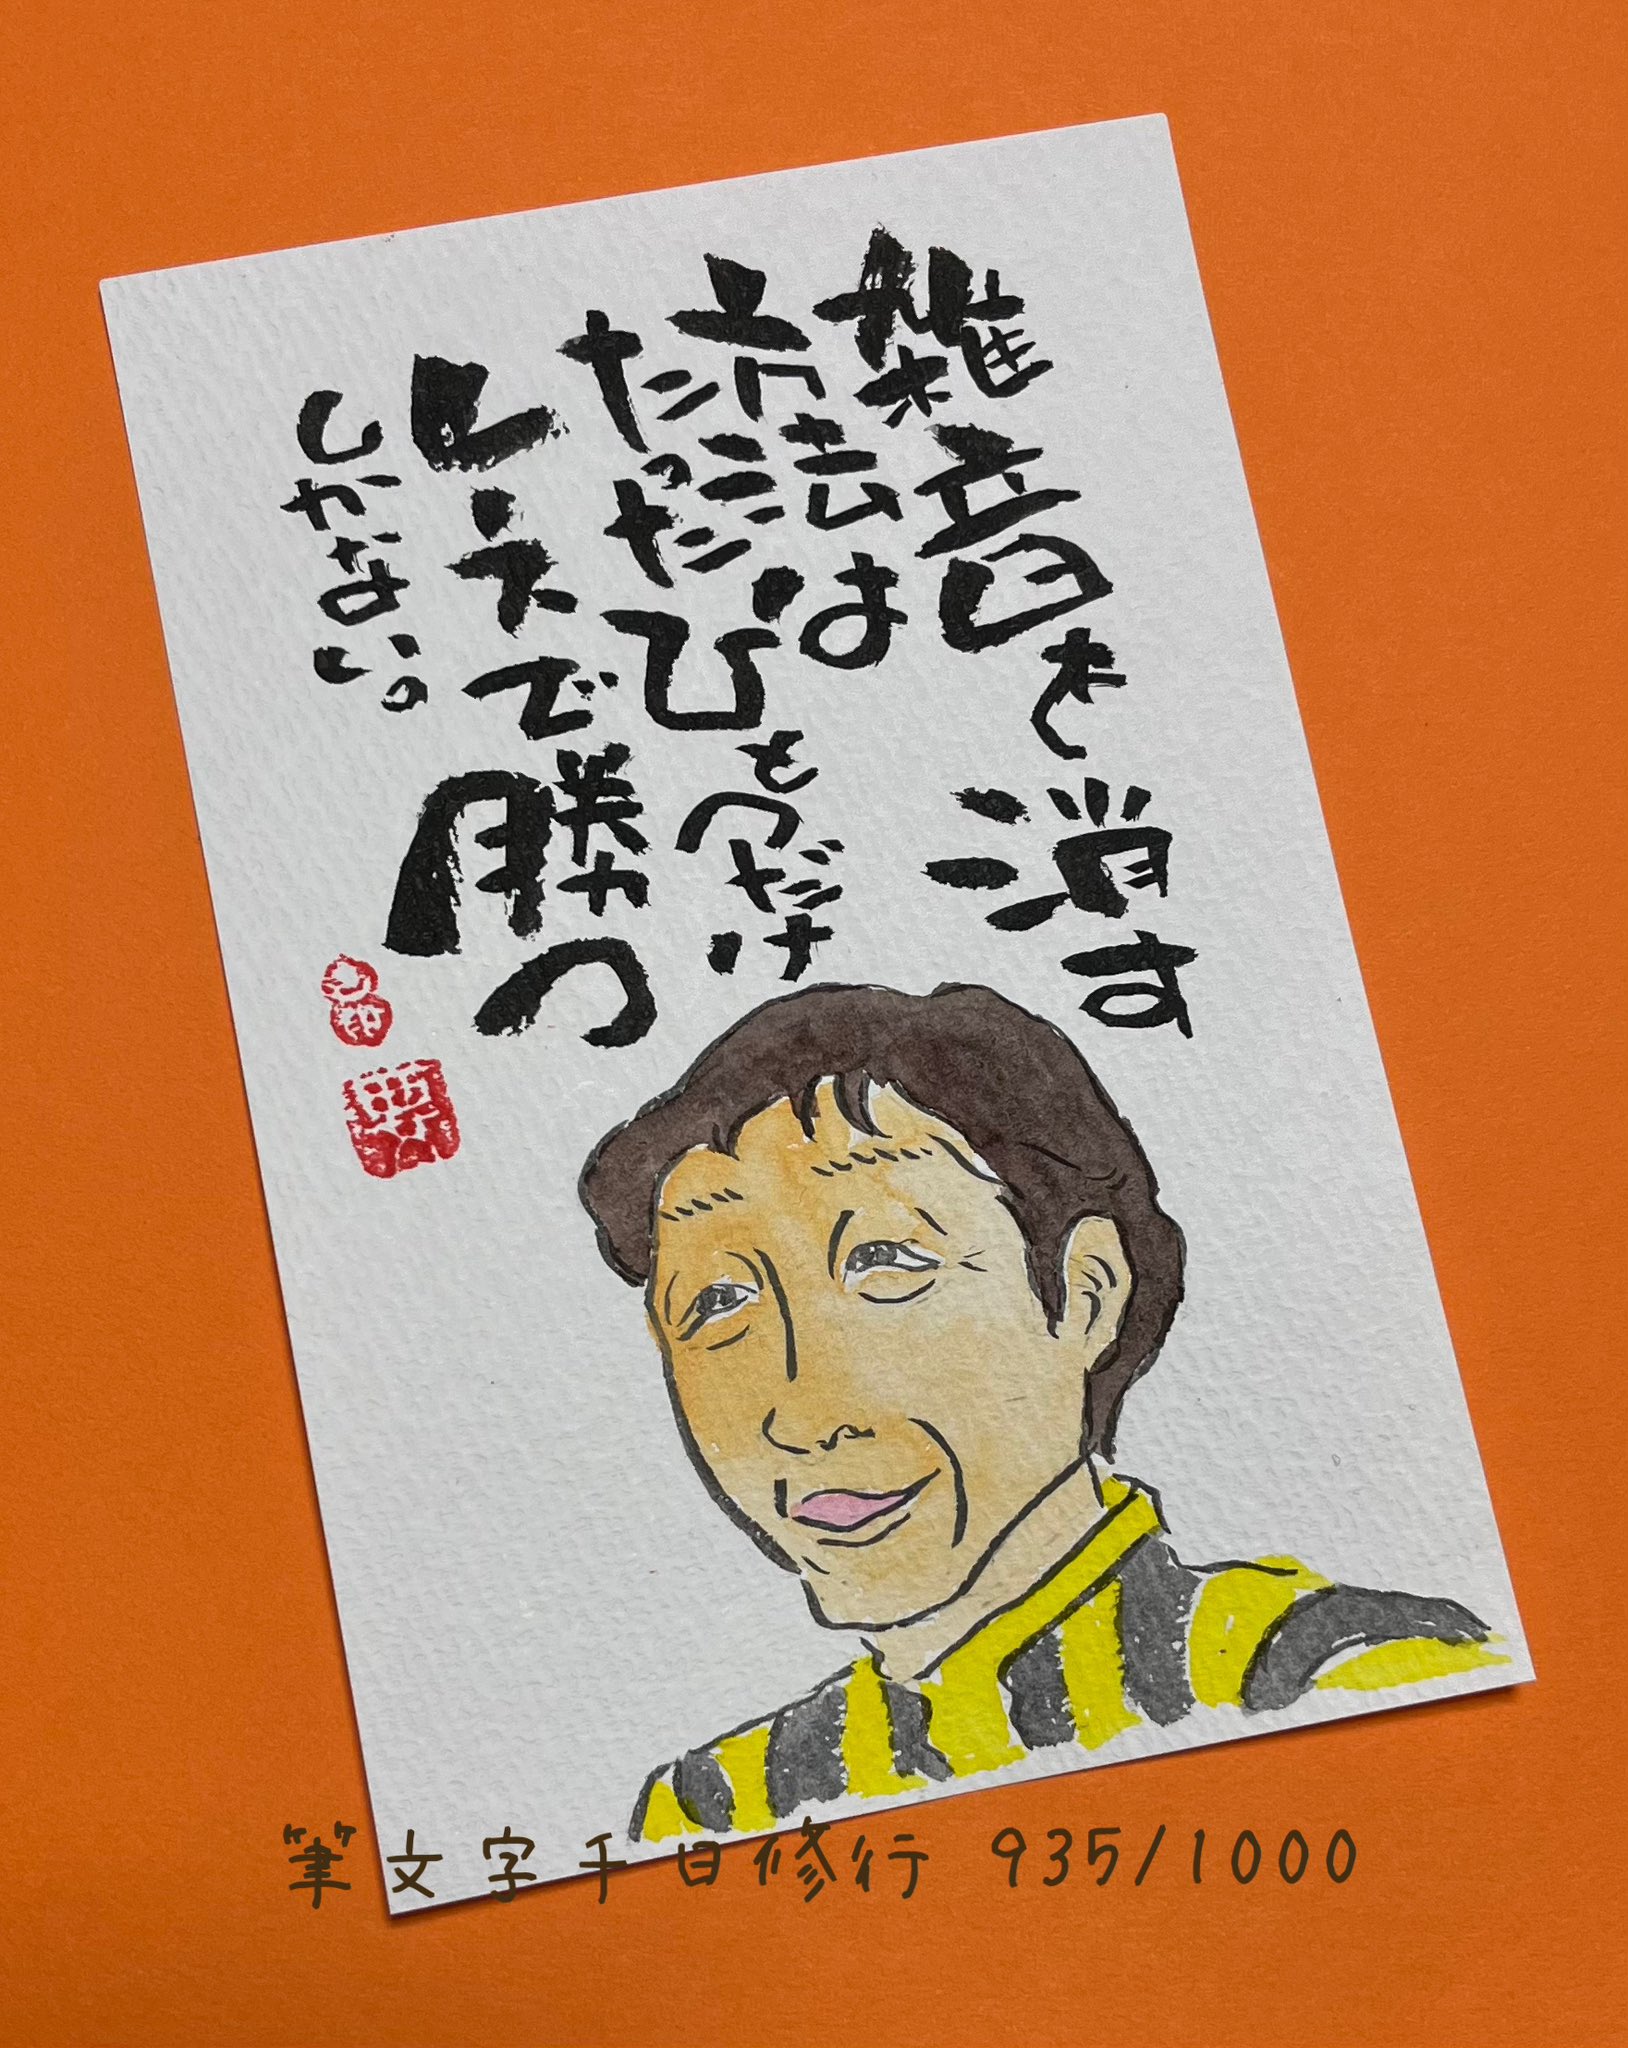 雑音を消す
方法は
たったひとつだけ、
レースで勝つ
しかない。
筆文字千日修行 935/1000